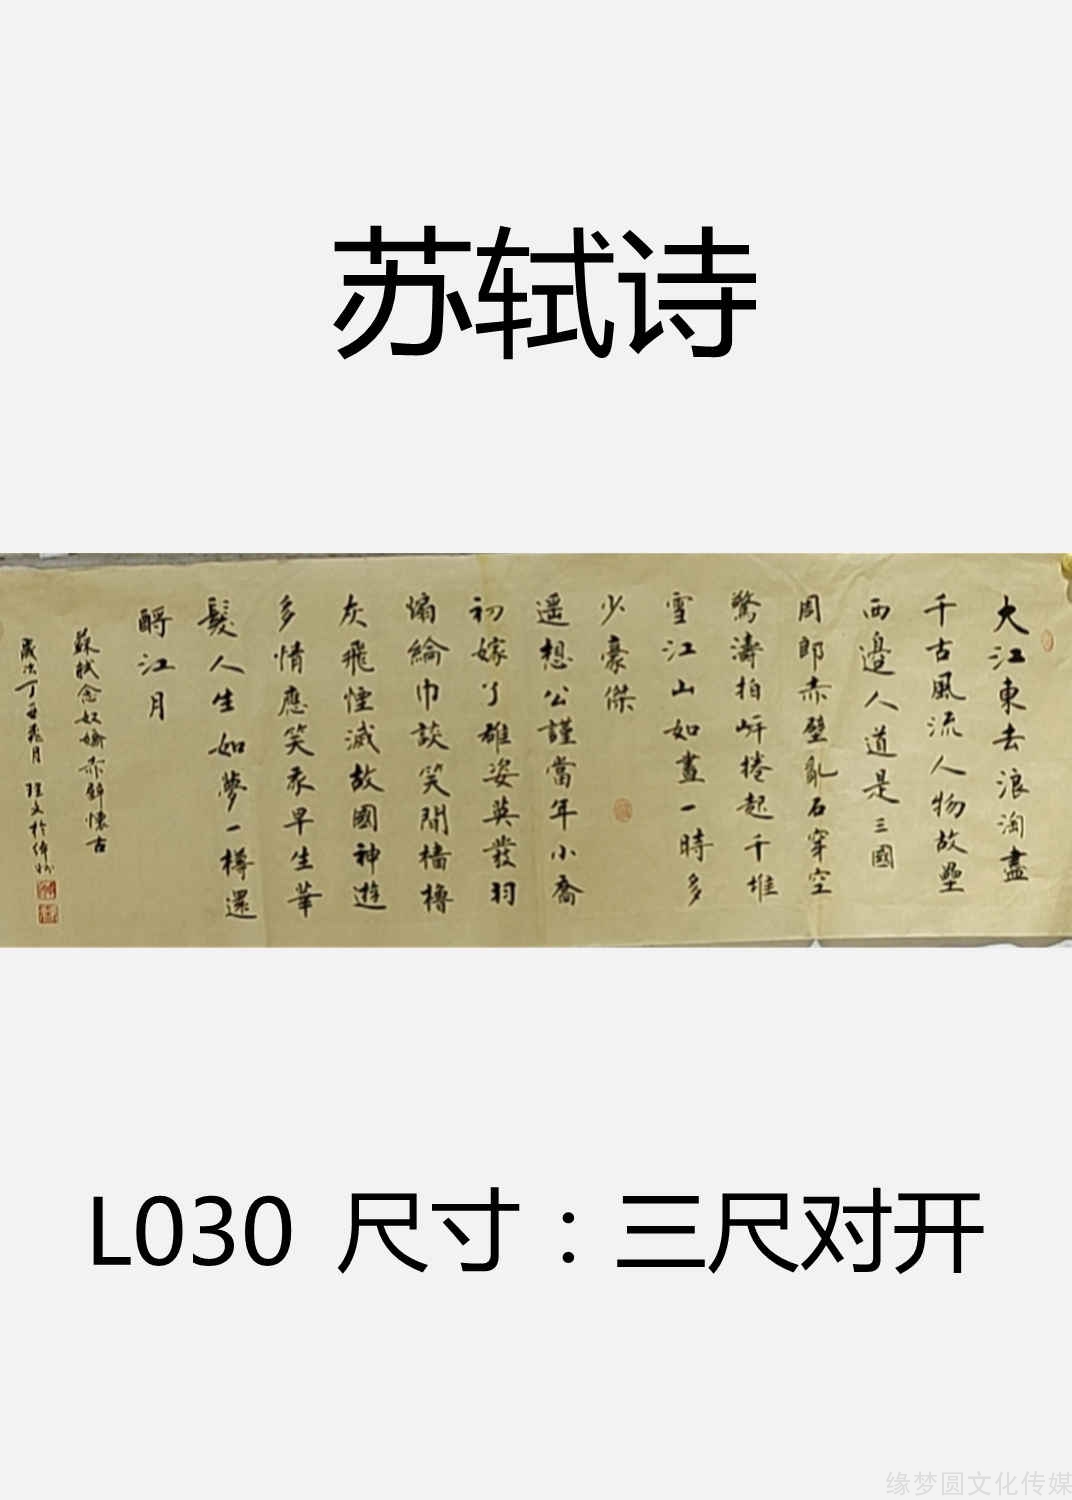 苏轼诗
大江東去浪淘盡
千古風流人物故壘
西邊人道是三國
周郎赤壁亂石穿空
驚濤拍岍捲起千堆
雪江山如畫一時多
少豪傑
遥想公謹當年小喬
初嫁了雄姿英發羽
煽綸巾談笑間檣櫓
灰飛煙滅故國神遊
多情應笑我早生華
髮人生如夢一樽還
酹江月
蘇軾念奴嬌赤壁懷古
歲次丁酉
L030 尺寸：三尺对开
缘梦圆文化传媒